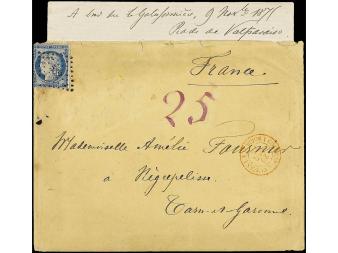 A bord de la Galissonnière, 9 Nov.bre 1875
Rade de Valparaiso
France
25
Mademoiselle Amélie Fournier
à Négrepelisse
Tarn-et-Garonne